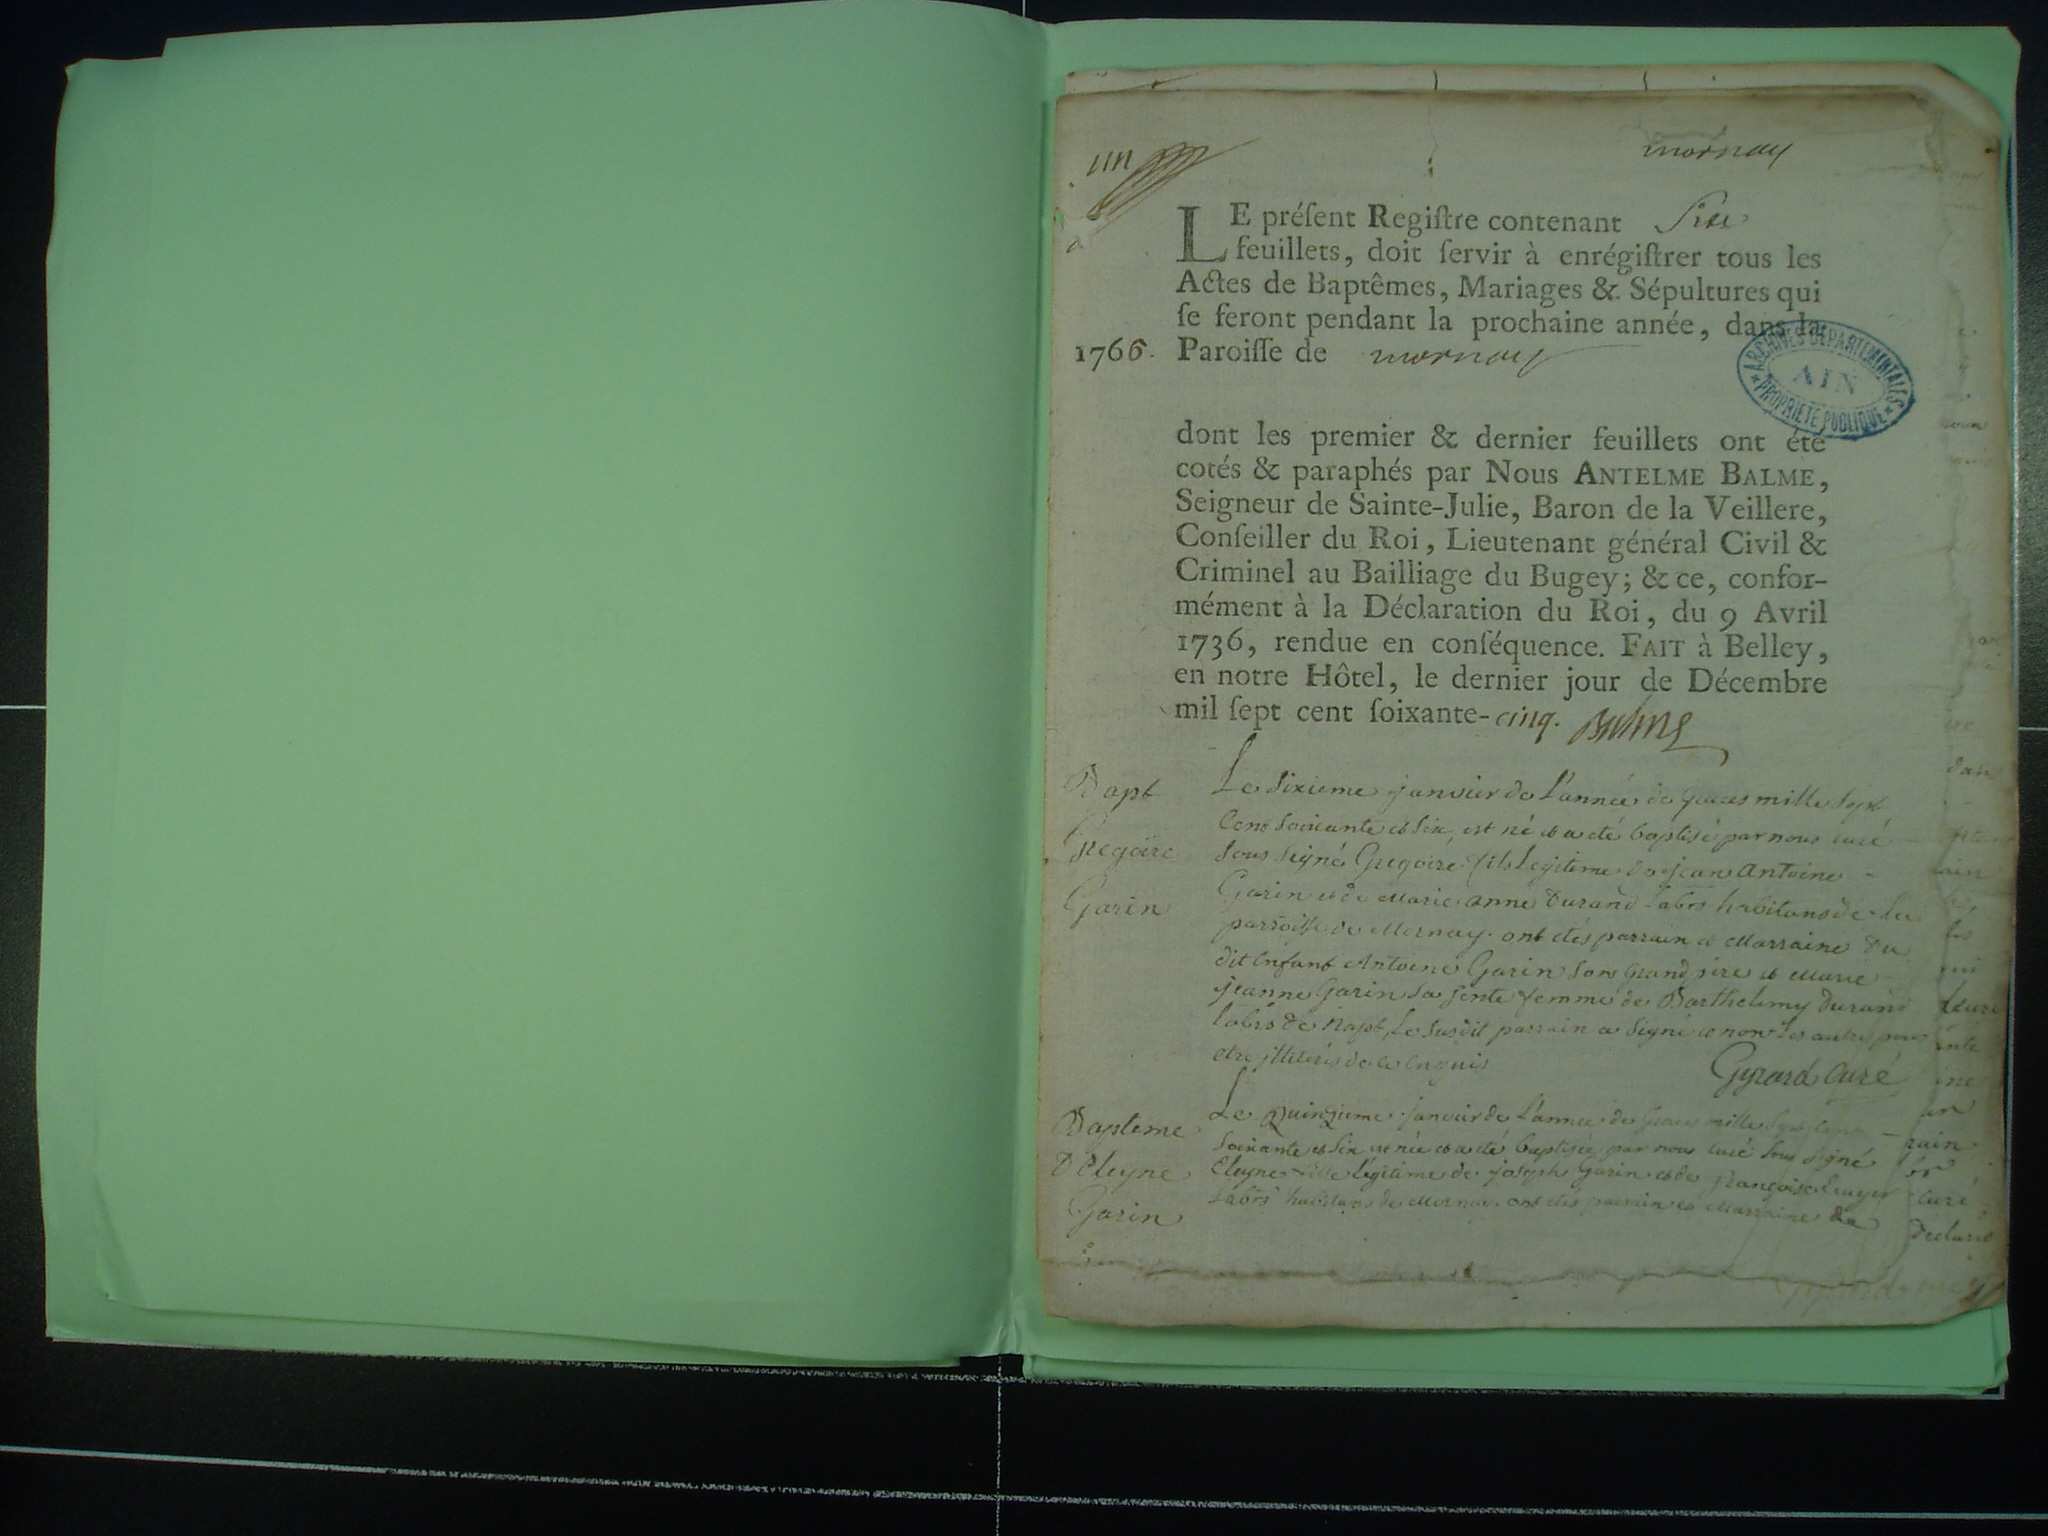 un
mornay
LE préſent Regiſtre contenant Six
feuillets, doit ſervir à enrégiſtrer tous les
Actes de Baptêmes, Mariages & Sépultures qui
ſe feront pendant la prochaine année, dans la
1766. Paroiſſe de mornay
ARCHIVES DÉPARTEMENTALES
AIN
PROPRIÉTÉ PUBLIQUE
dont les premier & dernier feuillets ont été
cotés & paraphés par Nous ANTELME BALME,
Seigneur de Sainte-Julie, Baron de la Veillere,
Conſeiller du Roi, Lieutenant général Civil &
Criminel au Bailliage du Bugey; & ce, confor-
mément à la Déclaration du Roi, du 9 Avril
1736, rendue en conſéquence. FAIT à Belley,
en notre Hôtel, le dernier jour de Décembre
mil ſept cent ſoixante-cinq. Balme
Bapt
Gregoire
Garin
Le Sixieme janvier de l'année de graces mille Sept
Cens Soixante et Six, est né et a eté baptisé par nous curé
Sous Signé Gregoire fils legitime de jean Antoine
Garin et de Marie anne Durand labrs habitans de la
parroisse de Mornay. ont etés parrain et Marraine Du
dit Enfant Antoine Garin Son grand pere et Marie
jeanne Garin Sa femme de Barthelemy Durand
labrs de Napt, Le Susdit parrain a Signé et non les autres pour
etre illiterés de ce Enquis
Gyrard Curé
Bapteme
D'Eleyne
Garin
Le Quinzieme janvier de L'année de Graces mille Sept Cens
Soixante et Six est née et a eté baptisée par nous curé Sous Signé
Eleyne fille légitime de joseph Garin et de françoise
Labrs habitans de Mornay. ont etés parrain et Marraine de